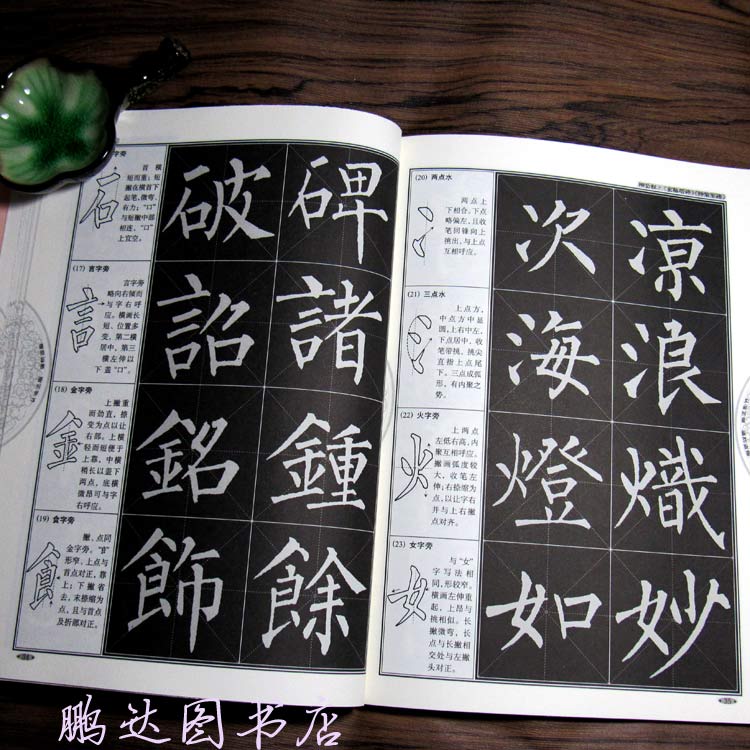 字旁
石
首横
短而重;短
撇在横首下
起笔,微弯、
有力;“口”
与短撇中部
相连,“口”
上宜空。
破 碑
(17) 言字旁
言
言字旁
略向右倾而
与字右呼
应。横画长
短、位置多
变,第二横
居中,第三
横左伸以
下盖“口”。
詔 諸
(18) 金字旁
金
上撇重
而劲直,捺
变为点以让
右部。上横
轻而短便于
上靠,中横
稍长以盖下
两点,底横
微昂可与字
右呼应。
銘 鍾
(19) 食字旁
食
撇、点同
金字旁。“官”
形窄,上点与
首点对正,靠
上;下撇省
去,末捺缩为
点,且与首点
及折部对正。
飾 餘
34
(20) 两点水
冫
两点上
下相合。下点
略偏左,且收
笔回锋向上
挑出,与上点
互相呼应。
次 凉
(21) 三点水
氵
上点方,
中点方中显
圆,上右中左,
下点居中,收
笔带挑,挑尖
直指上点尾
下。三点成弧
形,有内聚之
势。
海 浪
(22) 火字旁
火
上两点
左低右高,内
聚互相呼应。
撇画弧度较
大,收笔左
伸;右捺缩为
点,以让字右
并与上右撇
点对齐。
燈 熾
(23) 女字旁
女
与“女”
字写法相
同,形较窄。
横画左伸重
起,上昂与
挑相似。长
撇微弯,长
点与长撇相
交处与左撇
头对正。
如 妙
35
鹏达图书店